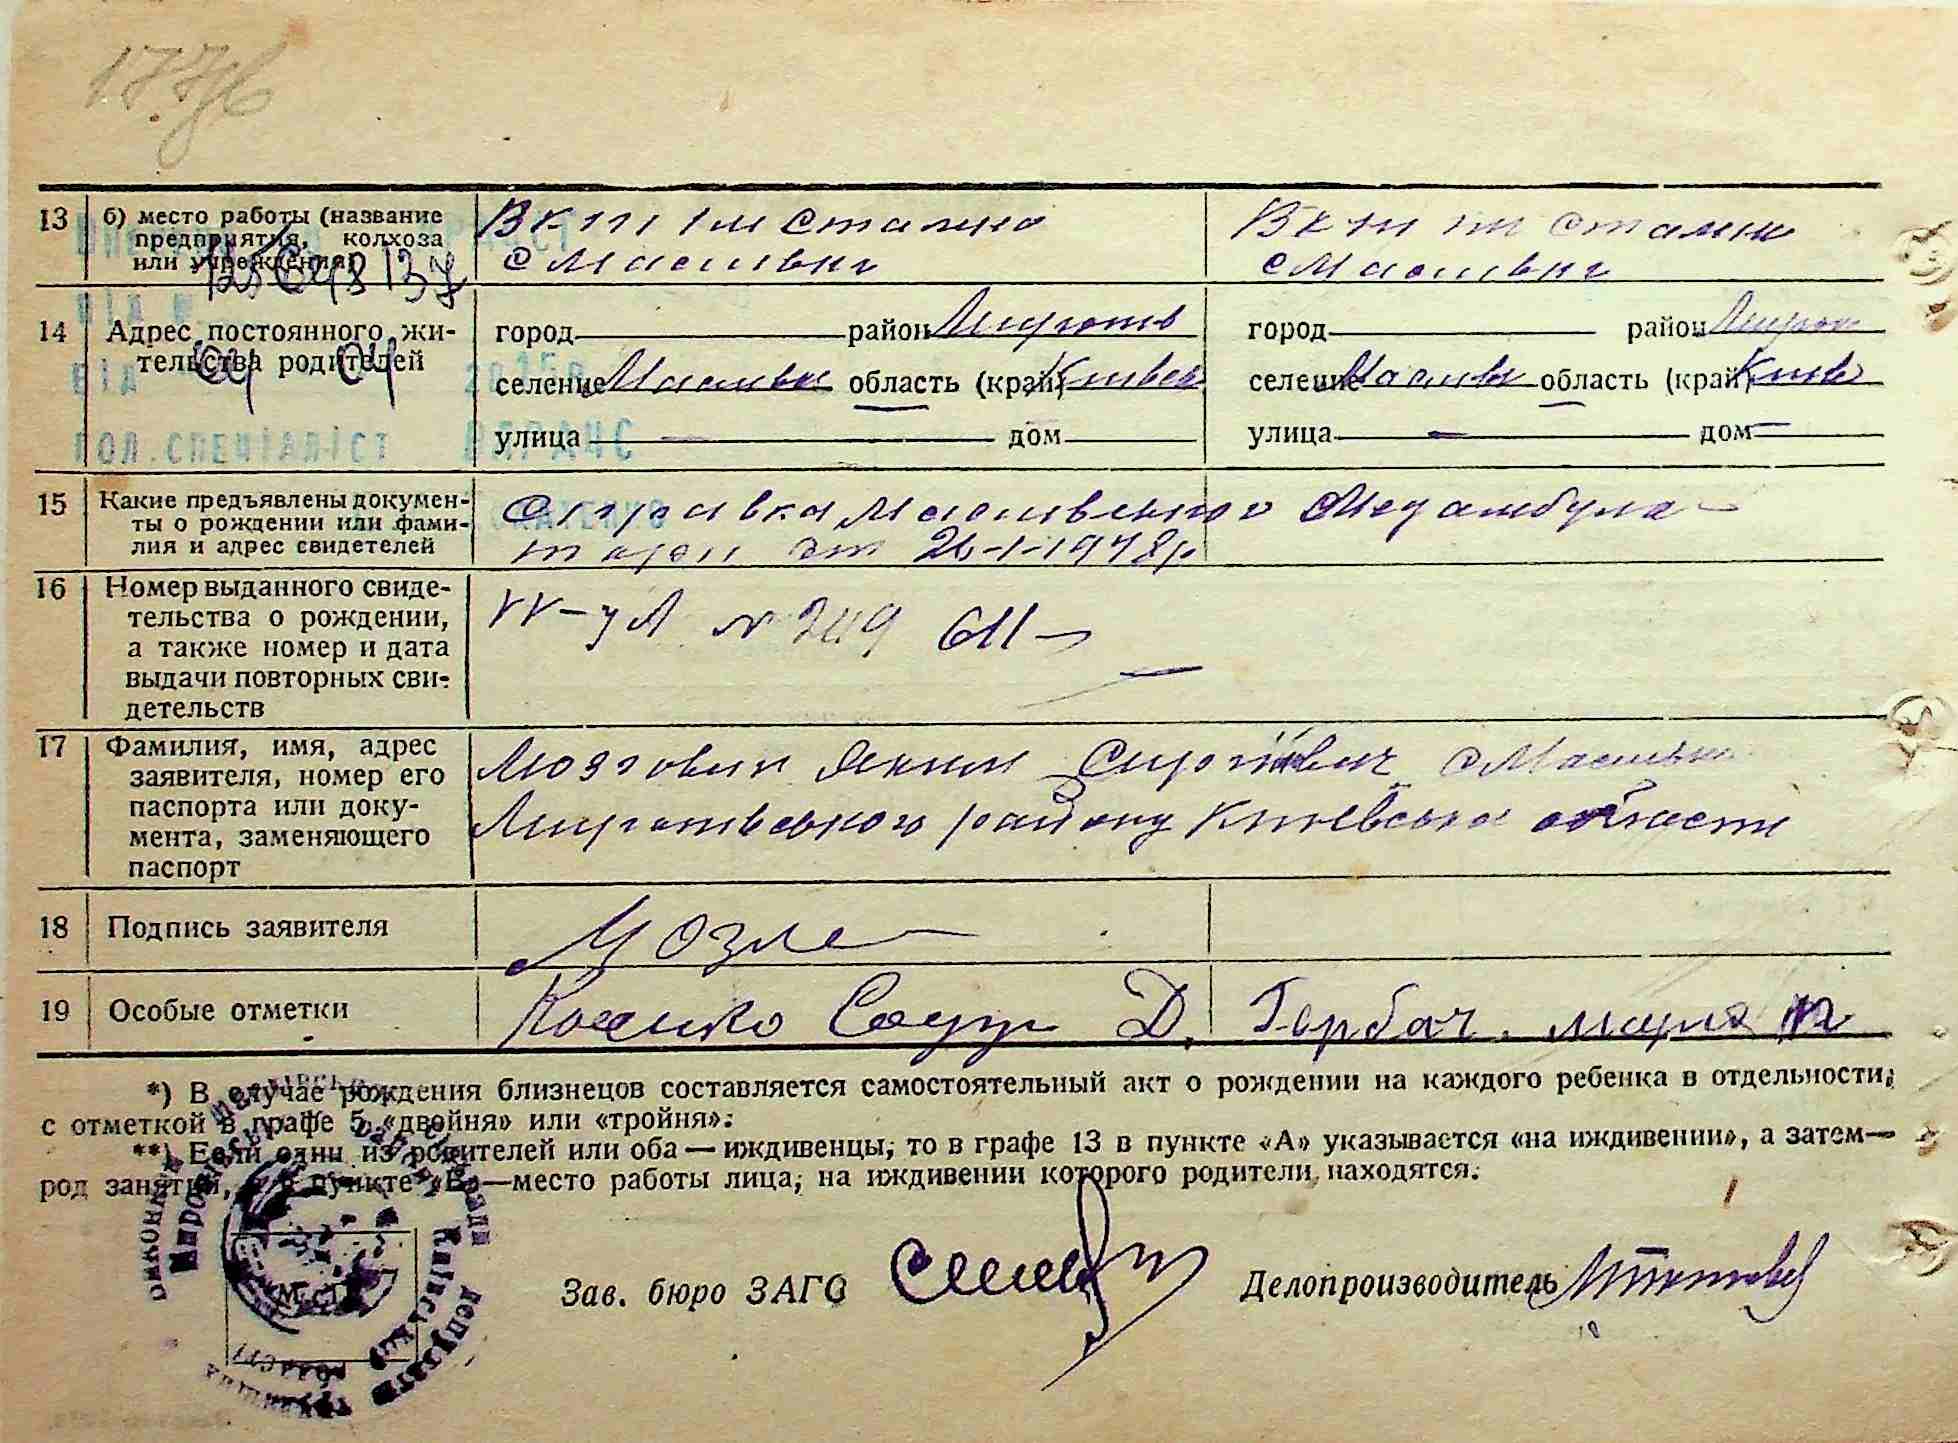 13 б) место работы (название
предприятия, колхоза
или учреждения)
Вкт ім Сталина
с Масливки
Вкт ім Сталина
с Масливки
14 Адрес постоянного жи-
тельства родителей
город район Мирон
селение Масливки область (край) Киевск
улица — дом
город район Мирон
селение Масливк область (край) Киев
улица — дом —
ГОЛ.СПЕЦІАЛІСТ ВДРАЦС
15 Какие предъявлены докумен-
ты о рождении или фами-
лия и адрес свидетелей
Справка Масливского Медамбула-
тории от 26-1-1948р
16 Номер выданного свиде-
тельства о рождении,
а также номер и дата
выдачи повторных сви-
детельств
УЛ № 249 611
17 Фамилия, имя, адрес
заявителя, номер его
паспорта или доку-
мента, заменяющего
паспорт
Мозговий Яким Сиргійович с Масливки
Миронівського району Киевської области
18 Подпись заявителя
19 Особые отметки
Д. Горбач
*) В случае рождения близнецов составляется самостоятельный акт о рождении на каждого ребенка в отдельности,
с отметкой в графе 5 «двойня» или «тройня».
**) Если один из родителей или оба — иждивенцы, то в графе 13 в пункте «А» указывается «на иждивении», а затем—
род занятий, а в пункте «Б»—место работы лица, на иждивении которого родители находятся.
Зав. бюро ЗАГС
Делопроизводитель